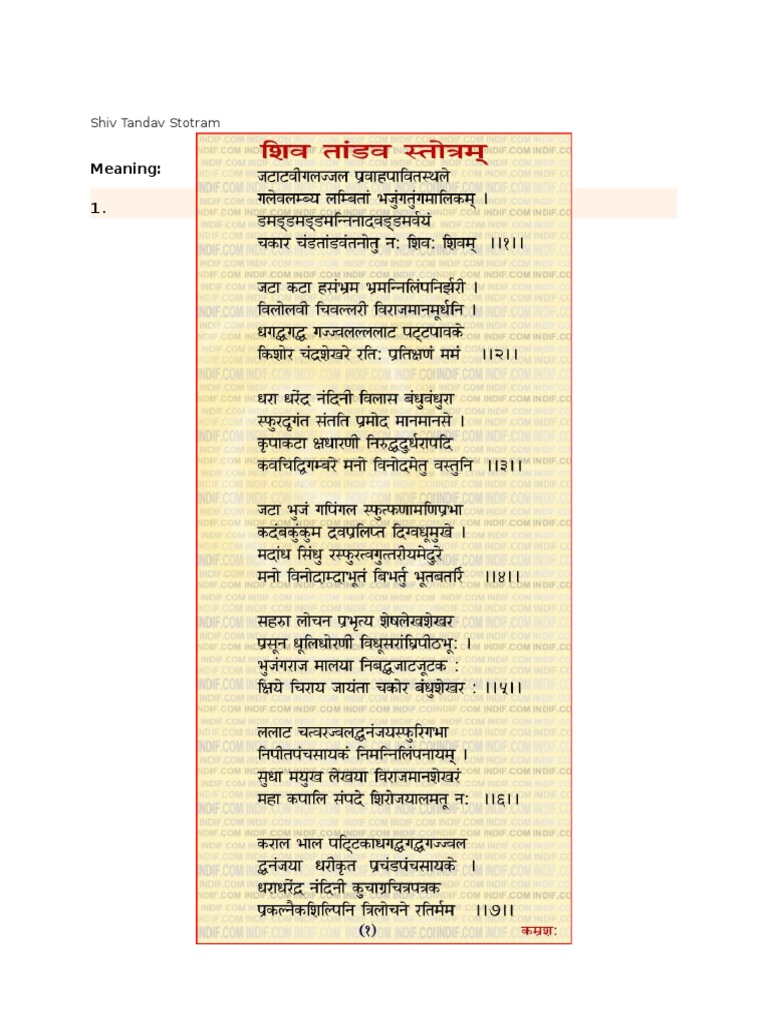 Shiv Tandav Stotram
Meaning:
1.
शिव तांडव स्तोत्रम्
जटाटवीगलज्जल प्रवाहपावितस्थले
गलेवलम्ब्य लम्बितां भजुंगतुंगमालिकम् ।
डमड्डमड्डमन्निनादवड्डमर्वयं
चकार चंडतांडवंतनोतु न: शिव: शिवम् ।।१।।
जटा कटा हसंभ्रम भ्रमन्निलिंपनिर्झरी ।
विलोलवी चिवल्लरी विराजमानमूर्धनि ।
धगद्धगद्ध गज्ज्वलल्ललाट पट्टपावके
किशोर चंद्रशेखरे रति: प्रतिक्षणं ममं ।।२।।
धरा धरेंद्र नंदिनी विलास बंधुवंधुरा
स्फुरदृगंत संतति प्रमोद मानमानसे ।
कृपाकटा क्षधारणी निरुद्धदुर्धरापदि
कवचिद्विगम्बरे मनो विनोदमेतु वस्तुनि ।।३।।
जटा भुजं गपिंगल स्फुत्फणामणिप्रभा
कदंबकुंकुम द्रवप्रलिप्त दिग्वधूमुखे ।
मदांध सिंधु रस्फुरत्वगुत्तरीयमेदुरे
मनो विनोदाम्द्राभूतं विभर्तु भूतबतर्रि ।।४।।
सहरुा लोचन प्रभृत्य शेषलेखशेखर
प्रसून धूलिधोरणी विधूसरांघ्रिपीठभू: ।
भुजंगराज मालया निबद्धजाटजूटक :
क्षिये चिराय जायंता चकोर बंधुशेखर : ।।५।।
ललाट चत्वरज्वलद्धनंजयस्फुरिगभा
निपीतपंचसायकं निमन्निलिंपनायम् ।
सुधा मयुख लेखया विराजमानशेखरं
महा कपालि संपदे शिरोजयालमतू न: ।।६।।
कराल भाल पटि्टकाधगद्धगद्धगज्ज्वल
द्धनंजया धरीकृत प्रचंडपंचसायके ।
धराधरेंद्र नंदिनी कुचाग्रचित्रपत्रक
प्रकल्नैकशिल्पिनि त्रिलोचने रतिर्मम ।।७।।
(१)
कम्रश: